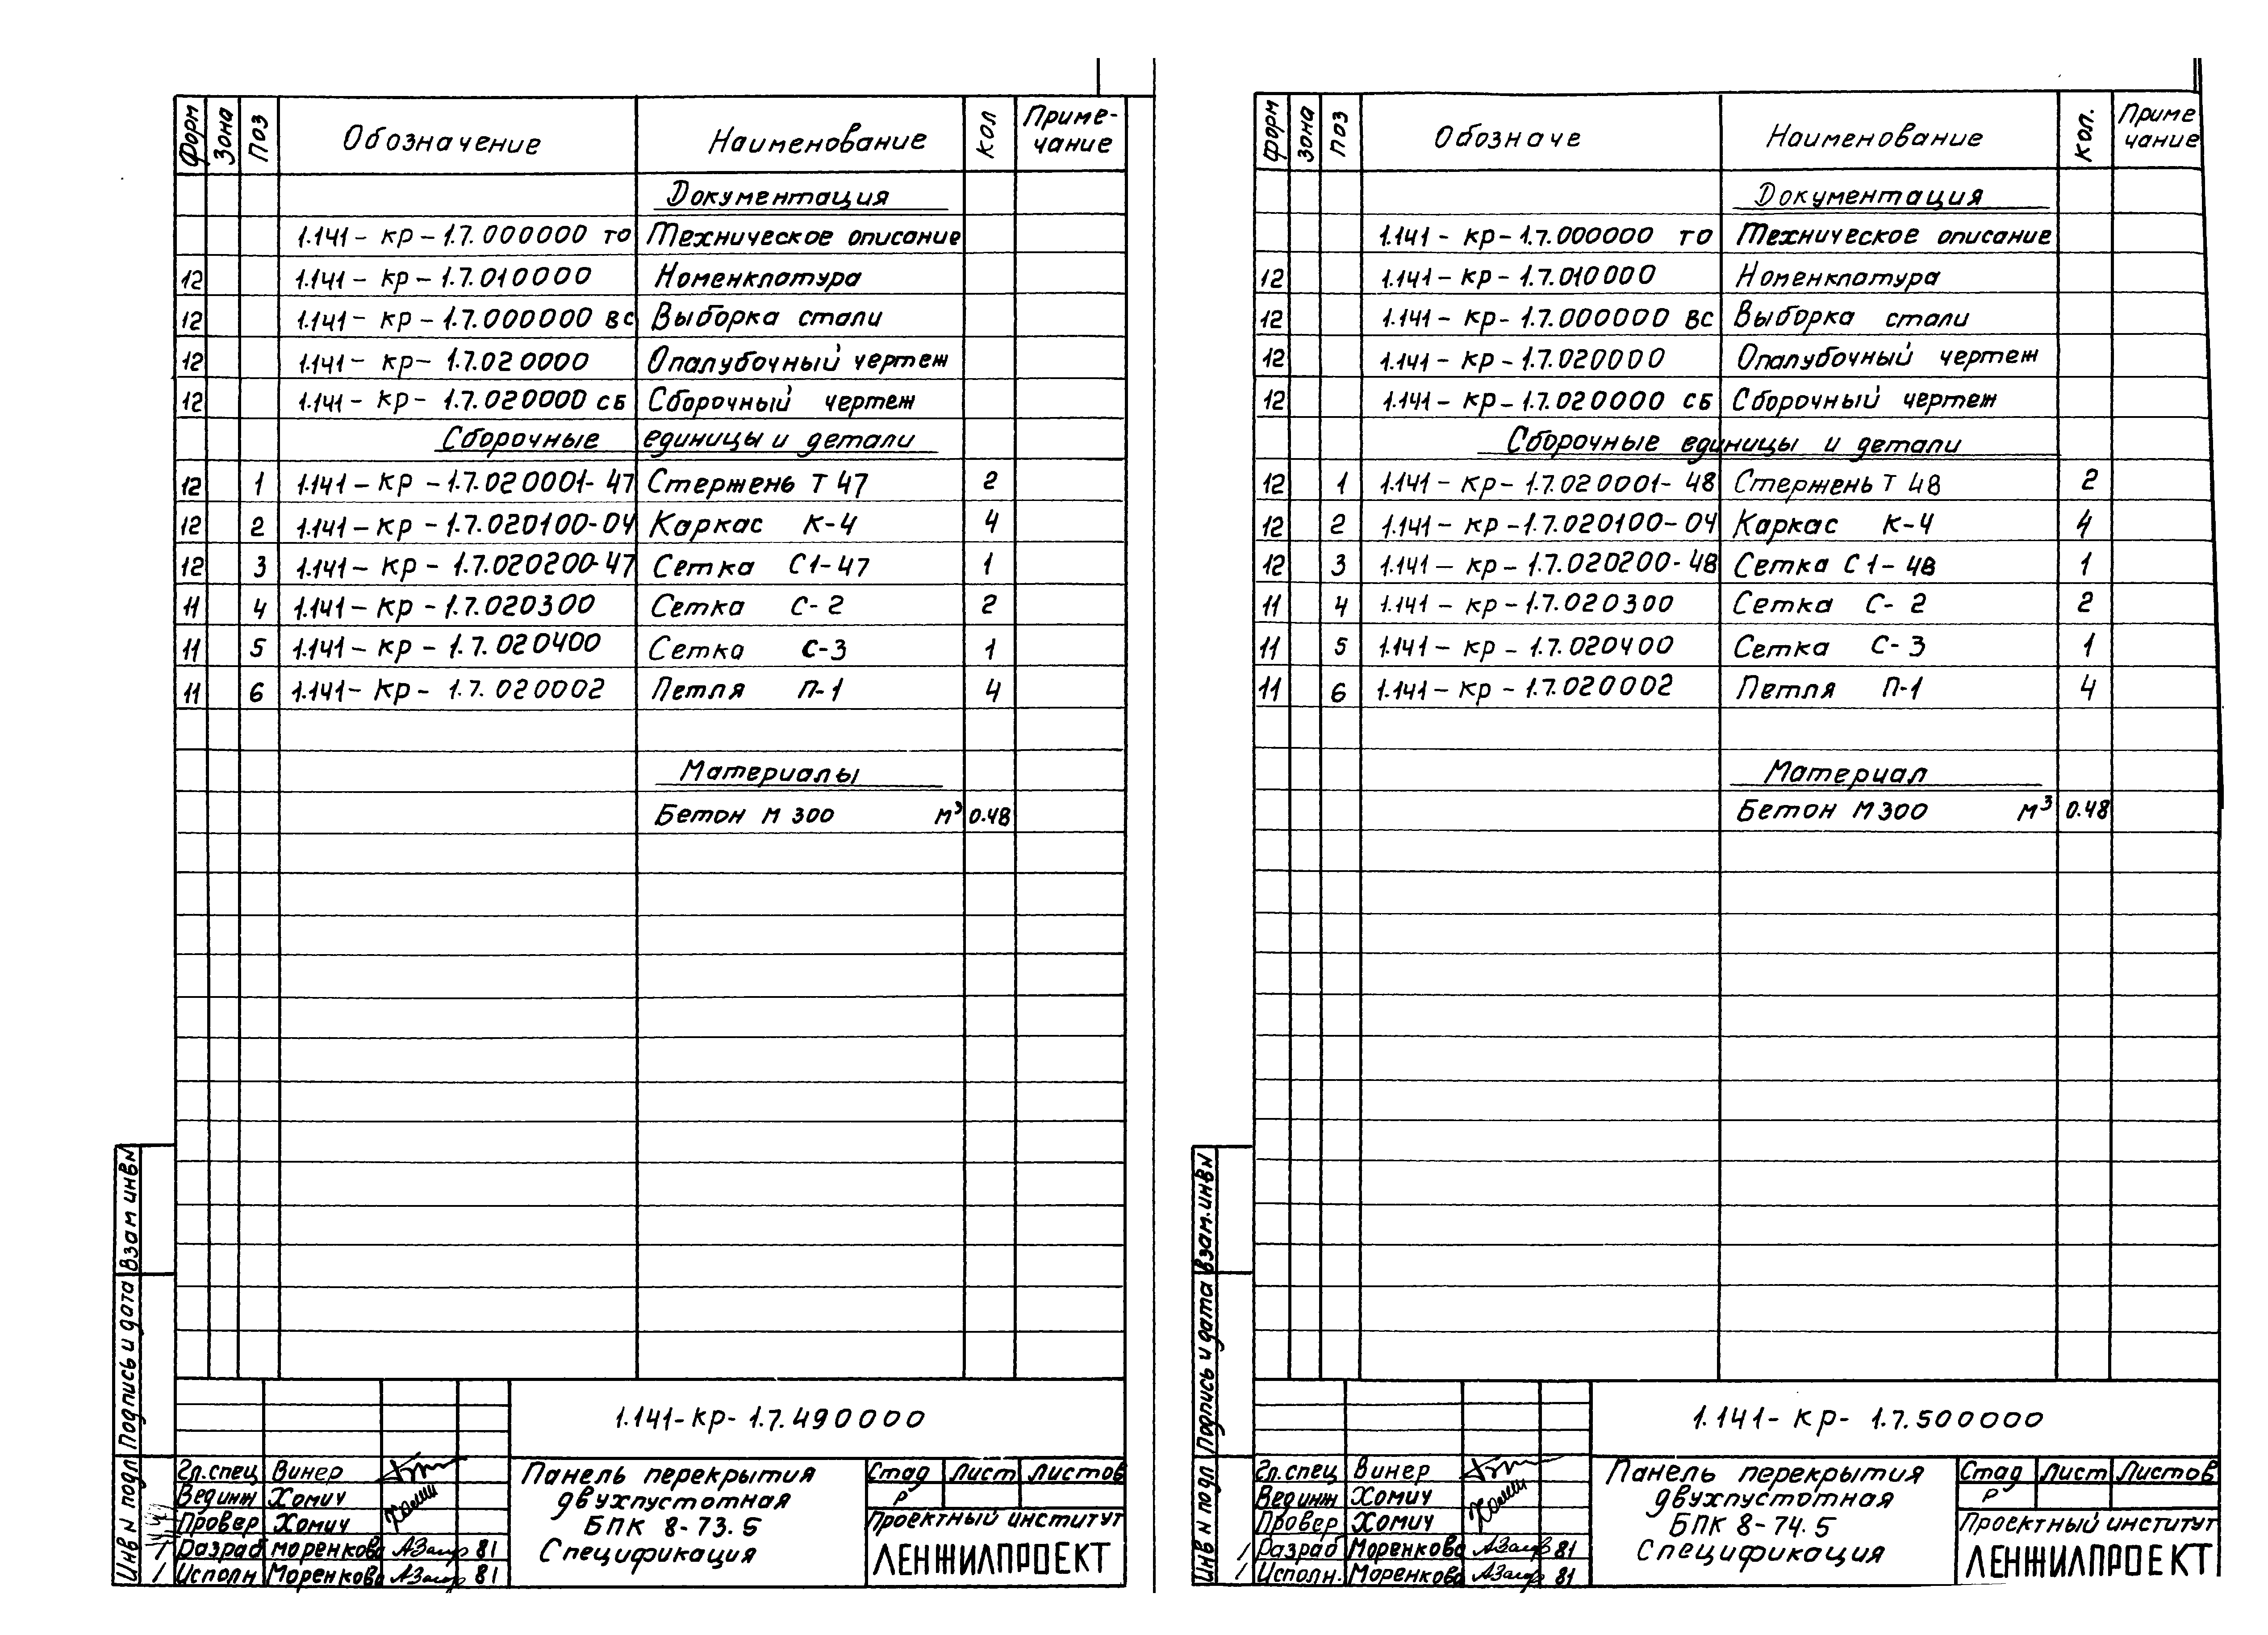 Форм Зона Поз Обозначение Наименование Кол Приме-
чание
Документация
1.141-кр-1.7.000000 то Техническое описание
12 1.141-кр-1.7.010000 Номенклатура
12 1.141-кр-1.7.000000 вс Выборка стали
12 1.141-кр-1.7.020000 Опалубочный чертеж
12 1.141-кр-1.7.020000 сб Сборочный чертеж
Сборочные единицы и детали
12 1 1.141-кр-1.7.020001-47 Стержень Т 47 2
12 2 1.141-кр-1.7.020100-04 Каркас К-4 4
12 3 1.141-кр-1.7.020200-47 Сетка С1-47 1
11 4 1.141-кр-1.7.020300 Сетка С-2 2
11 5 1.141-кр-1.7.020400 Сетка С-3 1
11 6 1.141-кр-1.7.020002 Петля П-1 4
Материалы
Бетон М 300 м³ 0.48
Взам инв №
Подпись и дата
Инв № подл
1.141-кр-1.7.490000
Гл.спец Винер
Вед инж Хомич
Провер Хомич
Разраб Моренкова 81
Исполн Моренкова 81
Панель перекрытия
двухпустотная
БПК 8-73.5
Спецификация
Стад Лист Листов
Р
Проектный институт
ЛЕНЖИЛПРОЕКТ
Форм Зона Поз Обозначе Наименование Кол. Приме
чание
Документация
1.141-кр-1.7.000000 то Техническое описание
12 1.141-кр-1.7.010000 Номенклатура
12 1.141-кр-1.7.000000 вс Выборка стали
12 1.141-кр-1.7.020000 Опалубочный чертеж
12 1.141-кр-1.7.020000 сб Сборочный чертеж
Сборочные единицы и детали
12 1 1.141-кр-1.7.020001-48 Стержень Т 48 2
12 2 1.141-кр-1.7.020100-04 Каркас К-4 4
12 3 1.141-кр-1.7.020200-48 Сетка С1-48 1
11 4 1.141-кр-1.7.020300 Сетка С-2 2
11 5 1.141-кр-1.7.020400 Сетка С-3 1
11 6 1.141-кр-1.7.020002 Петля П-1 4
Материал
Бетон М300 м³ 0.48
Взам.инв №
Подпись и дата
Инв № подл
1.141-кр-1.7.500000
Гл.спец Винер
Вед инж Хомич
Провер Хомич
Разраб Моренкова 81
Исполн. Моренкова 81
Панель перекрытия
двухпустотная
БПК 8-74.5
Спецификация
Стад Лист Листов
Р
Проектный институт
ЛЕНЖИЛПРОЕКТ